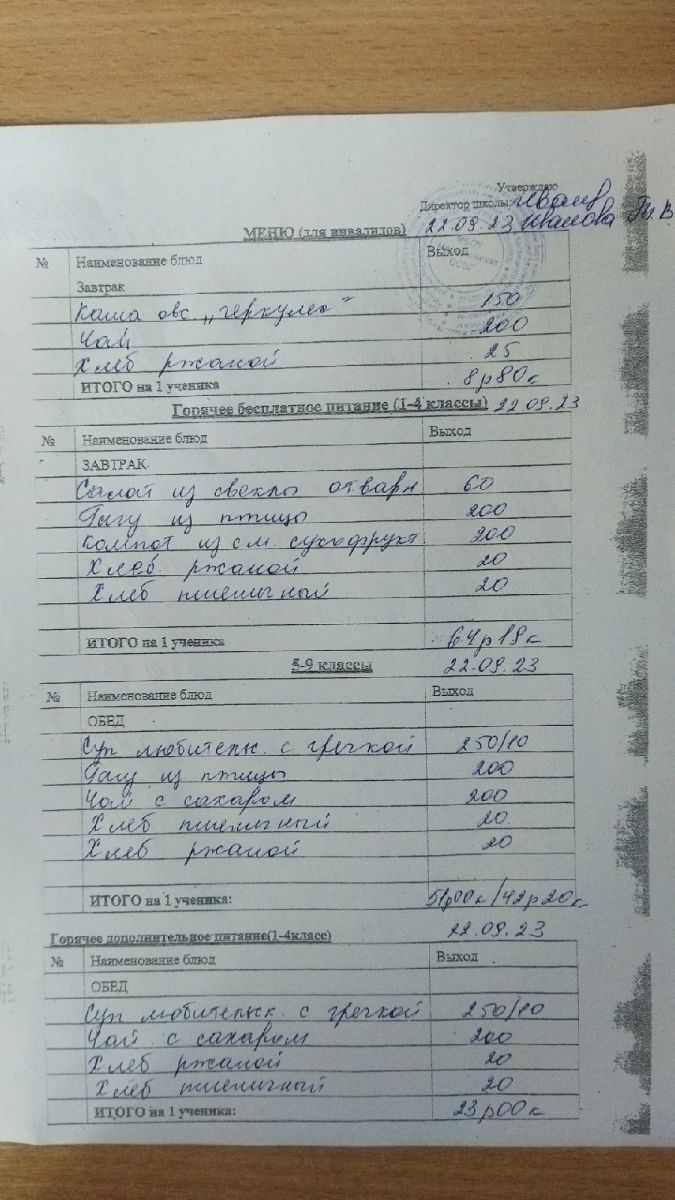 Утверждаю
Директор школы:
22.09.23 Иванова
МЕНЮ (для инвалидов)
№ Наименование блюд Выход
Завтрак
Каша овс „геркулес" 150
Чай 200
Хлеб ржаной 25
ИТОГО на 1 ученика 8р80к
Горячее бесплатное питание (1-4 классы) 22.09.23
№ Наименование блюд Выход
ЗАВТРАК
Салат из свеклы отварн 60
Рагу из птицы 200
Компот из см. сухофрукт 200
Хлеб ржаной 20
Хлеб пшеничный 20
ИТОГО на 1 ученика 64р19к
5-9 классы 22.09.23
№ Наименование блюд Выход
ОБЕД
Суп любительск. с гречкой 250/10
Рагу из птицы 200
Чай с сахаром 200
Хлеб пшеничный 20
Хлеб ржаной 20
ИТОГО на 1 ученика: 51р00к/42р20к
Горячее дополнительное питание(1-4класс) 22.09.23
№ Наименование блюд Выход
ОБЕД
Суп любительск. с гречкой 250/10
Чай с сахаром 200
Хлеб ржаной 20
Хлеб пшеничный 20
ИТОГО на 1 ученика: 23р00к